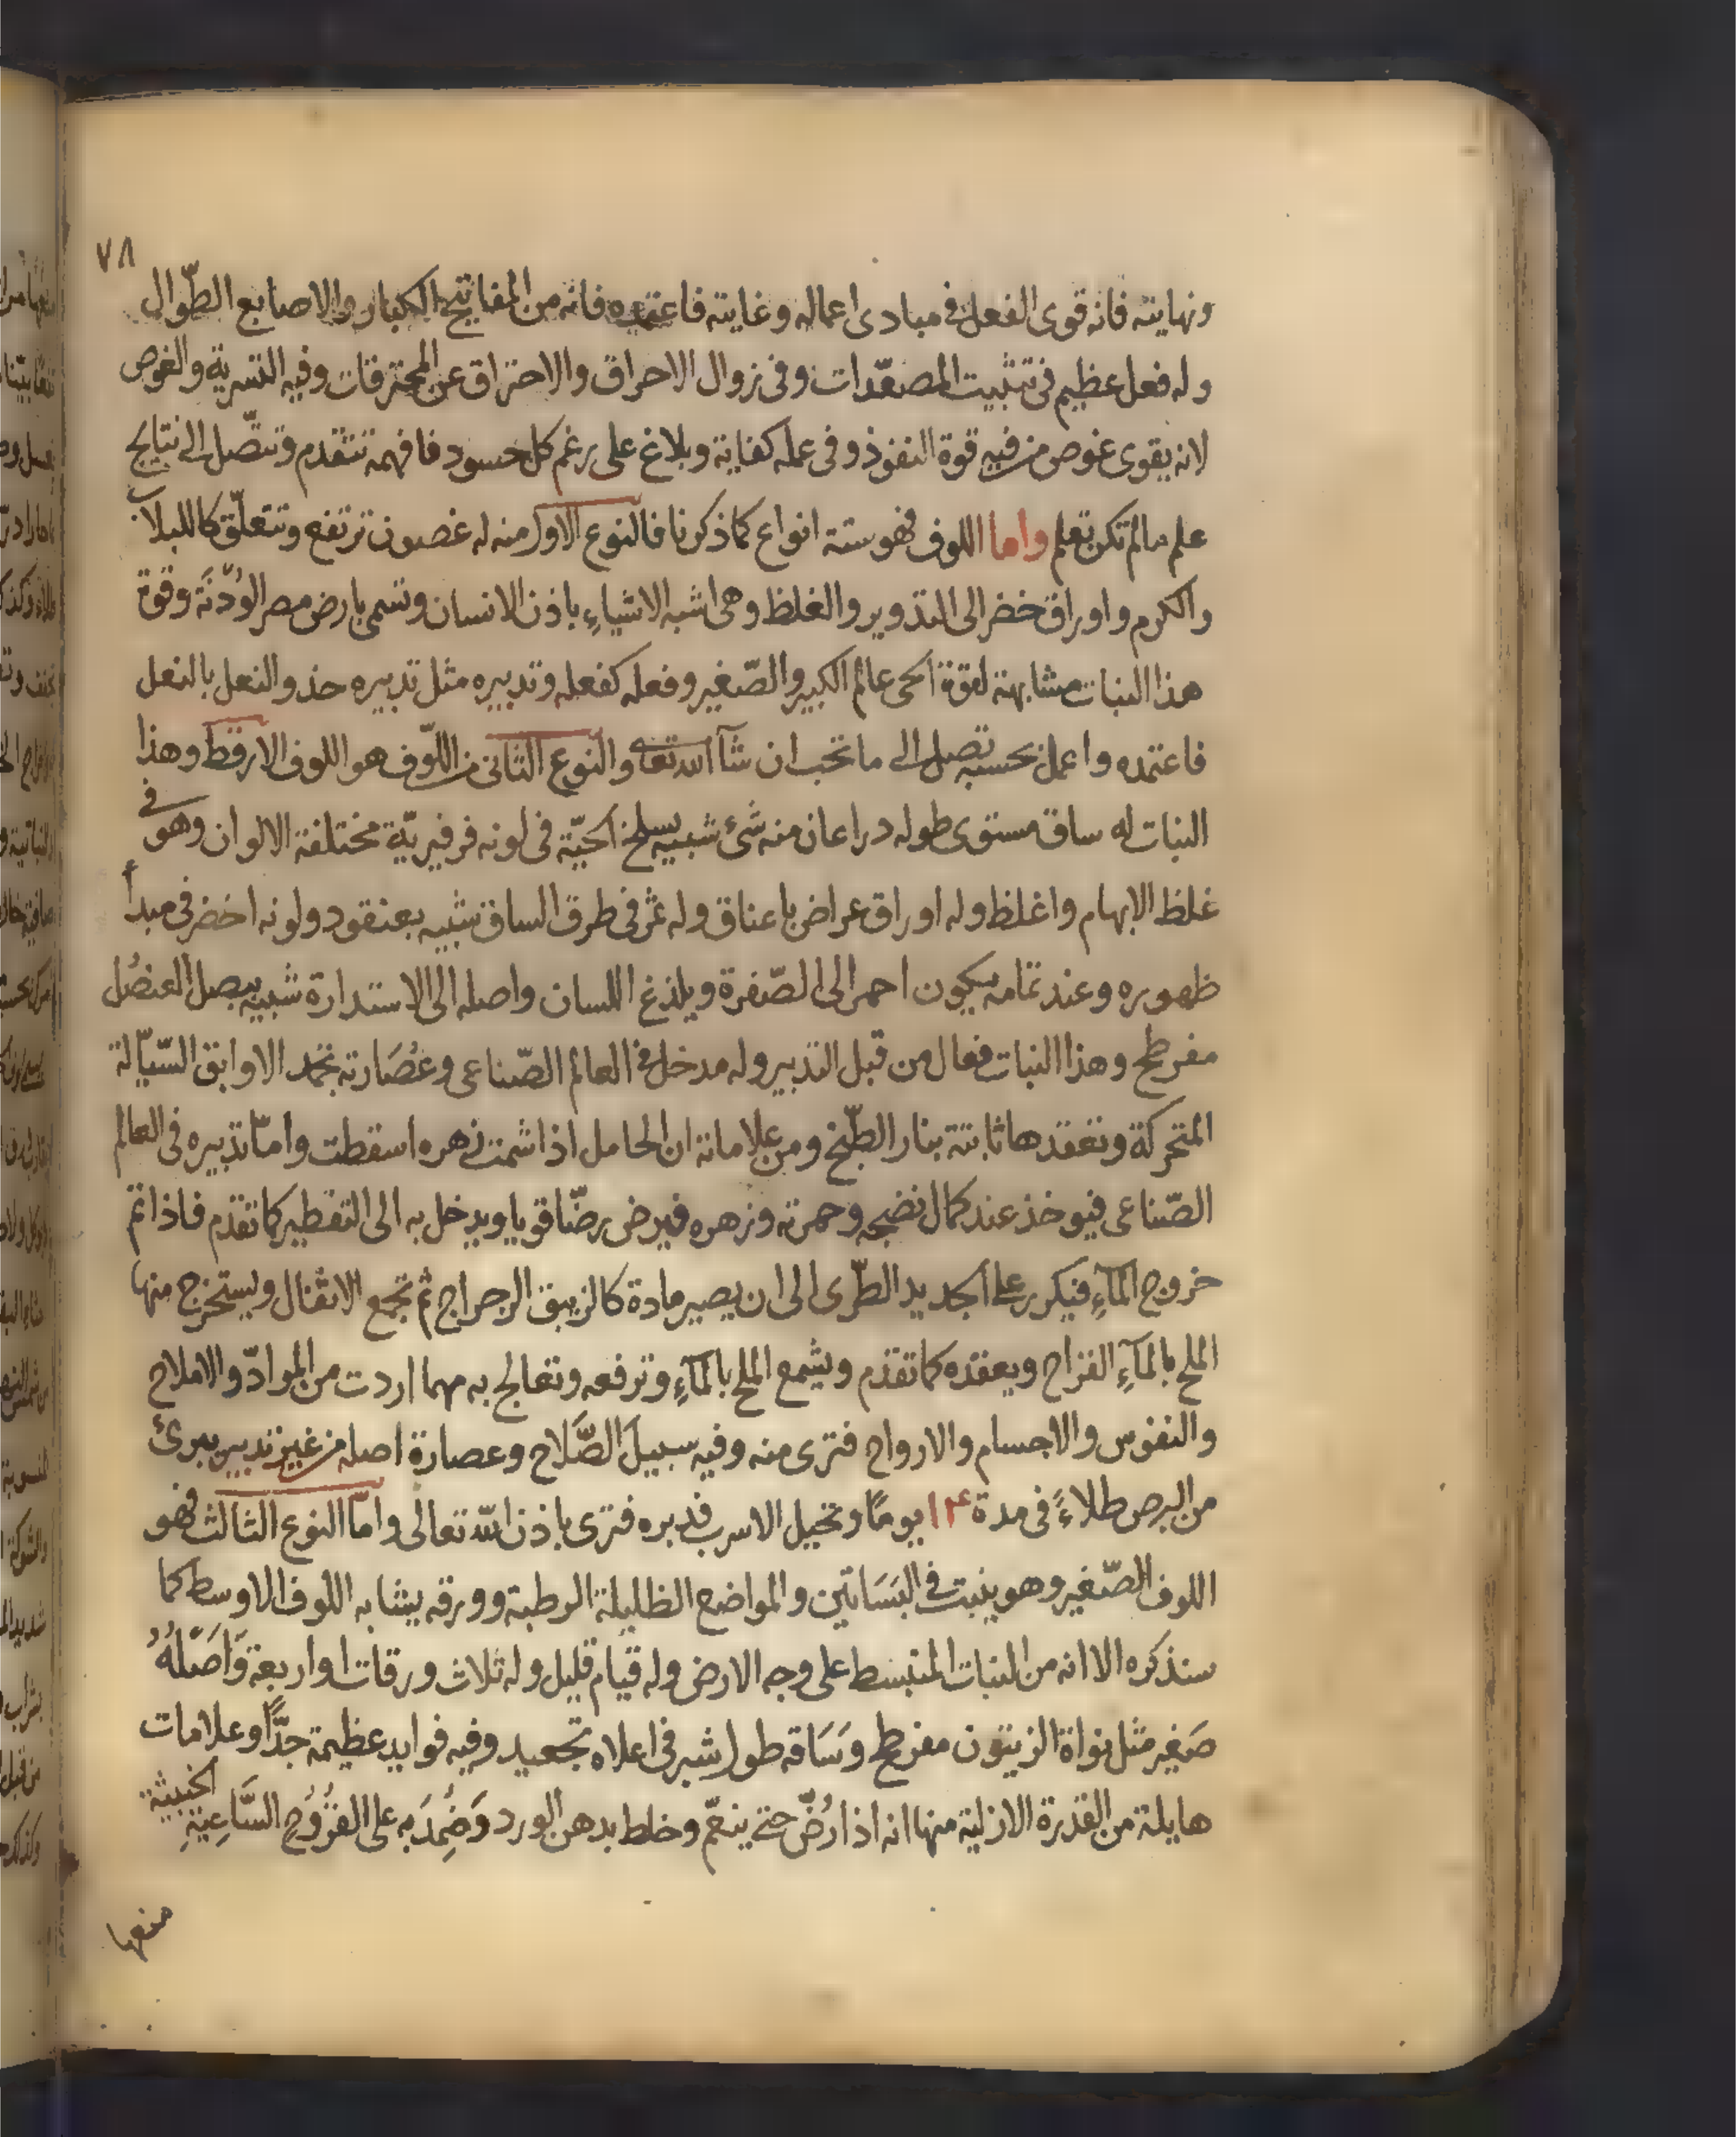 ٧٨
ونهايته فانه قوى الفعل فى مبادى اعماله وغايته فاعتمده فانه من المفاتيح الكبار والاصابع الطّوال
وله فعل عظيم فى تثبيت المصعّدات وفى زوال الاحراق والاحتراق عن المحترقات وفيه التسرية والغوص
لانه يقوى غوص من فيه قوة النفوذ وفى عمله كفاية وبلاغ على رغم كل حسود فافهمه تتقدم وتتّصل الى نتايج
علم مالم تكن تعلم واما اللوف فهو ستة انواع كما ذكرنا فالنوع الاول منه له غصون ترتفع وتتعلّق كاللبلاب
والكرم واوراق خضر الى التدوير والغلظ وهى اشبه الاشياءِ باذن الانسان وتسمى بارض مصر الوُدْنَة وقوة
هذا النبات مشابهة لقوة احى عالم الكبير والصّغير وفعله كفعله وتدبيره مثل تدبيره حذو النعل بالنعل
فاعتمده واعمل بحسبه تصل الى ما تحب ان شآ الله تعا والنوع الثانى من اللّوف هو اللوف الارقط وهذا
النبات له ساق مستوى طوله دراعان منه شئ شبيه بسلخ الحيّة فى لونه فرفيريّة مختلفة الالوان وهو فى
غلظ الابهام واغلظ وله اوراق عراض باعناق وله ثمر فى طرف الساق شبيه بعنقود ولونه اخضر فى مبدأ
ظهوره وعند تمامه يكون احمر الى الصّفرة ويلذغ اللسان واصله الى الاستدارة شبيه ببصل العنصُل
مفرطح وهذا النبات فعال من قبل التدبير وله مدخل فى العالم الصّناعى وعُصَارته تجمد الاوابق السّيّالة
المتحركة وتعقدها ثابتة بنار الطّبخ ومن علاماته ان الحامل اذا شمت زهره اسقطت وامّا تدبيره فى العالم
الصّناعى فيوخذ عند كمال نضجه وحمرته وزهره فيرض رضّا قويا ويدخل به الى التقطير كما تقدّم فاذا تم
خروج المآءِ فيكرر على الجديد الطّرى الى ان يصير مادة كالزيبق الرجراج ثم تجمع الاثفال ويستخرج منها
الملح بالمآءِ القراح ويعقده كما تقدّم ويشمع الملح بالمآءِ وترفعه وتعالج به مهما اردت من الموادّ والاملاح
والنفوس والاجسام والارواح فترى منه وفيه سبيل الصَّلاح وعصارة اصله من غير تدبير يبرئ
من البرص طلاءً فى مدة ١٤ يومًا وتحيل الاسرب فدبره فترى باذن الله تعالى وامّا النوع الثالث فهو
اللوف الصّغير وهو ينبت فى البَسَاتين والمواضع الظليلة الرطبة وورقه يشابه اللوف الاوسط كما
سنذكره الا انه من النبات المنبسط على وجه الارض وله قيام قليل وله ثلاث ورقات او اربعة وَاَصْلُهُ
صَغير مثل نواة الزيتون مفرطح وَسَاقه طول شبر فى اعلاه تجعيد وفيه فوايد عظيمة جدًّا وعلامات
هايلة من القدرة الازلية منها انه اذا رُضّ حتى ينعّم وخلط بدهن الورد وَضُمِدَ به على القُرُوُحِ السَّاعِيَةِ الخبيثة
منعها